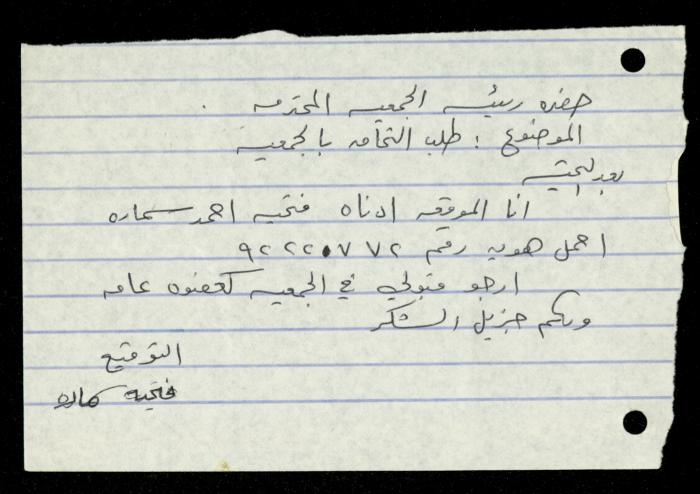 حضره رئيسة الجمعيه المحترمه .
الموضوع : طلب التحاق بالجمعية
بعد التحيه
انا الموقعه ادناه فتحيه احمد سماره
احمل هويه رقم ٩٢٢٢٠٧٧٢
ارجو قبولي في الجمعيه كعضوه عامه
ولكم جزيل الشكر
التوقيع
فتحيه سماره